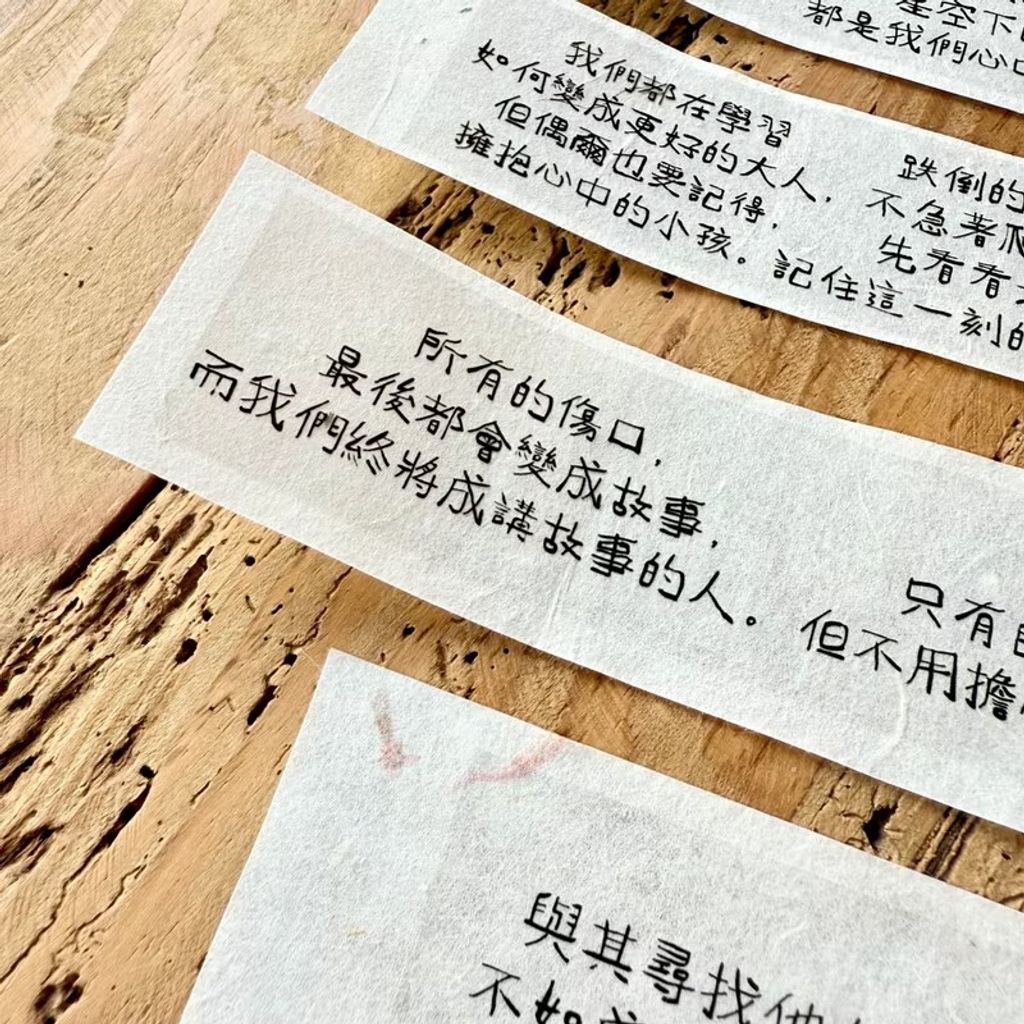 星空下
都是我們心中
我們都在學習
如何變成更好的大人，
但偶爾也要記得，
擁抱心中的小孩。
跌倒的
不急著爬
先看看
記住這一刻的
所有的傷口，
最後都會變成故事，
而我們終將成講故事的人。
只有
但不用擔
與其尋找
不如